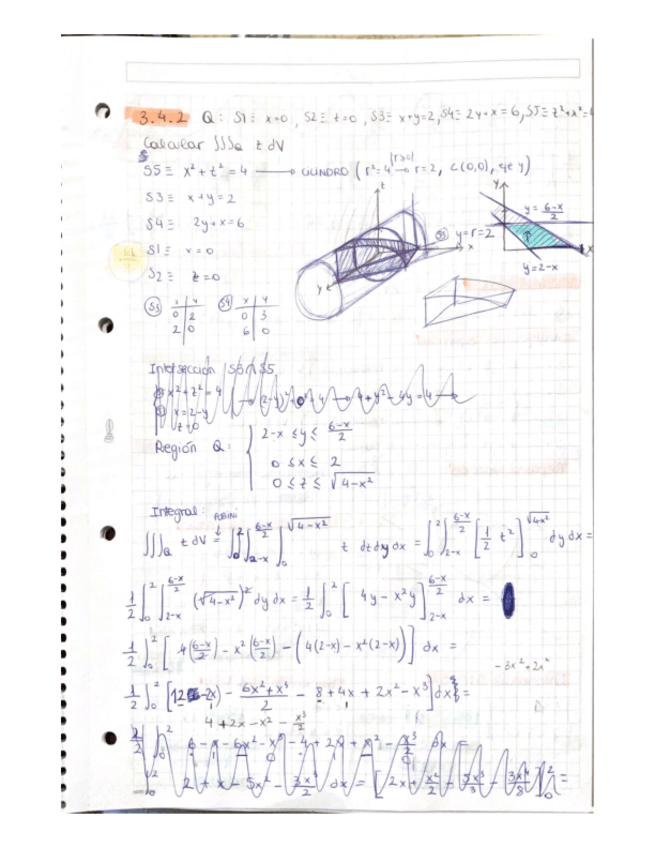 3.4.2 Q: S1≡ x=0, S2≡ z=0, S3≡ x+y=2, S4≡ 2y+x=6, S5≡ z²+x²=4
Calcular ∭_Q z dV
S5≡ x²+z²=4 → CILINDRO (r²=4 → r=2, C(0,0), eje y)
S3≡ x+y=2
S4≡ 2y+x=6
S1≡ x=0
S2≡ z=0
z
x
y
y=r=2
y
y=(6-x)/2
x
y=2-x
S3 x y
0 2
2 0
S4 x y
0 3
6 0
Intersección S3∩S5
x²+z²=4
x=2-y
z=0
Región Q: { 2-x ≤ y ≤ (6-x)/2
0 ≤ x ≤ 2
0 ≤ z ≤ √(4-x²)
Integral: FUBINI
∭_Q z dV = ∫_0^2 ∫_{2-x}^{(6-x)/2} ∫_0^{√(4-x²)} z dz dy dx = ∫_0^2 ∫_{2-x}^{(6-x)/2} [1/2 z²]_0^{√(4-x²)} dy dx =
1/2 ∫_0^2 ∫_{2-x}^{(6-x)/2} (√(4-x²))² dy dx = 1/2 ∫_0^2 [4y - x²y]_{2-x}^{(6-x)/2} dx =
1/2 ∫_0^2 [4((6-x)/2) - x²((6-x)/2) - (4(2-x) - x²(2-x))] dx =
-3x²+2x²
1/2 ∫_0^2 [12-2x) - (6x²+x³)/2 - 8+4x+2x²-x³] dx =
4+2x-x²-x³/2